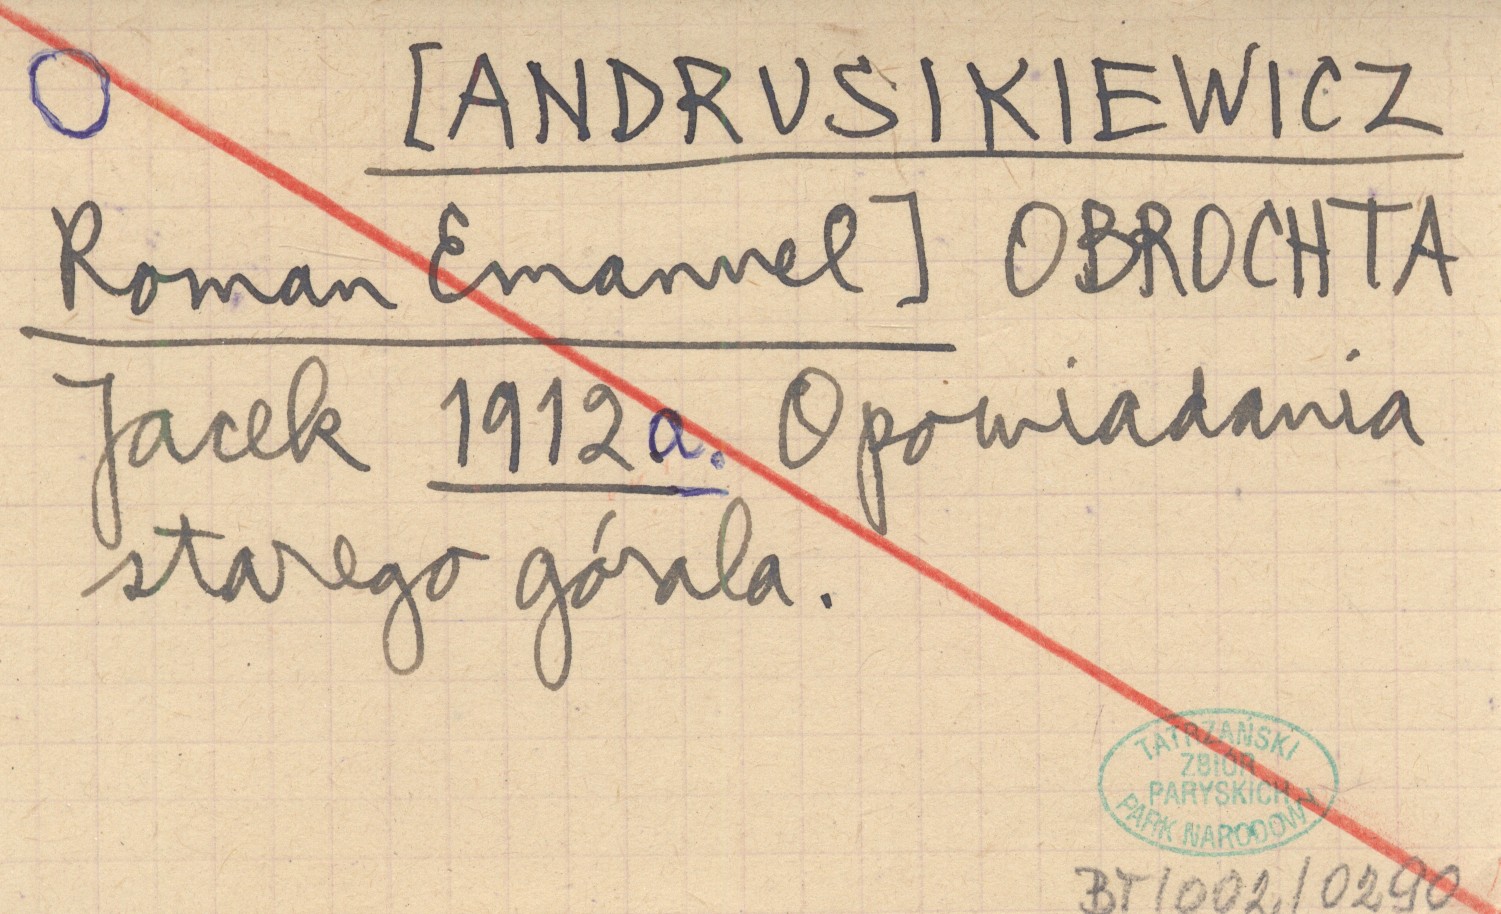 [ANDRUSIKIEWICZ
Roman Emanuel] OBROCHTA
Jacek 1912a. Opowiadania
starego górala.
TATRZAŃSKI
ZBIÓR
PARYSKICH
PARK NARODOWY
BT/002/0290